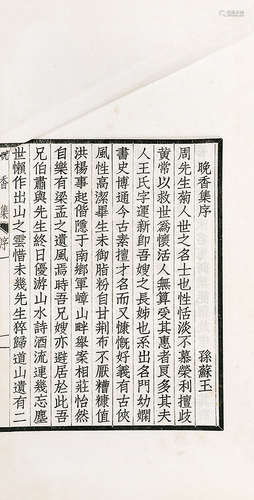 晚香集序
孫蘇玉
周先生菊人世之名士也性恬淡不慕榮利擅歧
黃常以救世為懷活人無算受其惠者良多其夫
人王氏字運新即吾嫂之長姊也系出名門幼嫻
書史博通今古素擅才名而又慷慨好義有古俠
風性高潔畢生未御脂粉自甘荆布不厭糟糠值
洪楊事起偕隱于南鄉軍嶂山畔舉案相莊怡然
自樂有梁孟之遺風焉時吾兄嫂亦避居於此吾
兄伯肅與先生終日優游山水詩酒流連幾忘塵
世懶作出山之雲惜未幾先生猝歸道山遺有二
晚香集 序